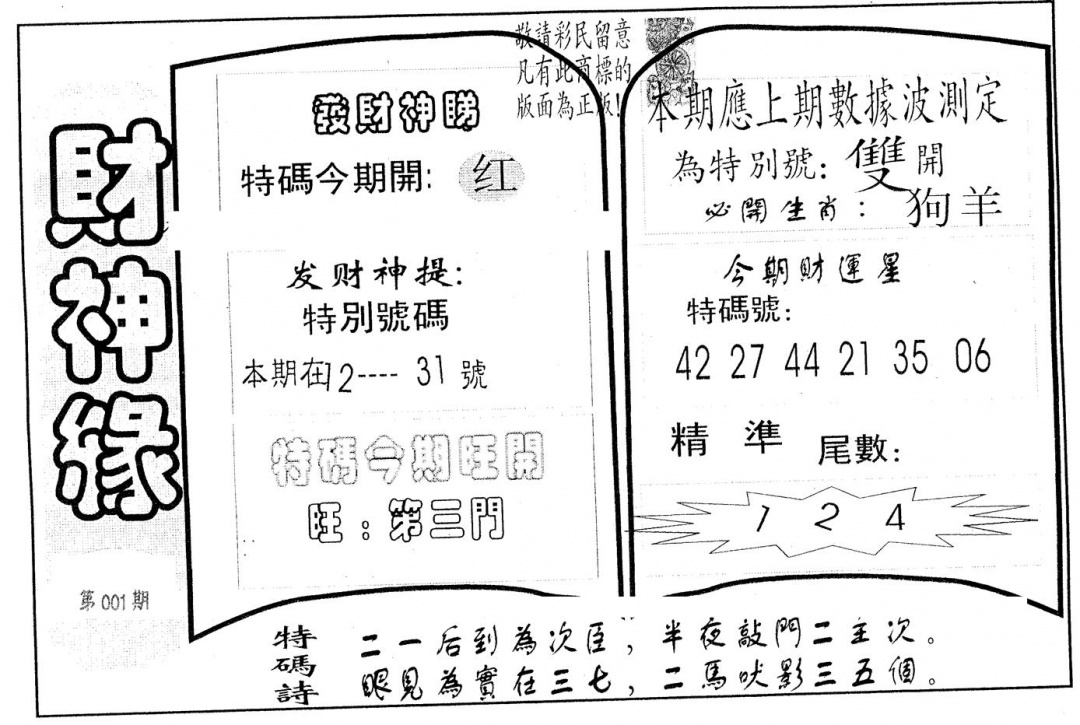 財神緣
第001期
敬請彩民留意
凡有此商標的
版面為正版!
發財神睇
特碼今期開: 红
发财神提:
特別號碼
本期在12---- 31 號
特碼今期旺開
旺:第三門
本期應上期數據波測定
為特別號: 雙開
必開生肖: 狗羊
今期財運星
特碼號:
42 27 44 21 35 06
精 準 尾數:
1 2 4
特碼詩
二一后到為次臣,半夜敲門二主次。
眼見為實在三七,二馬吠影三五個。